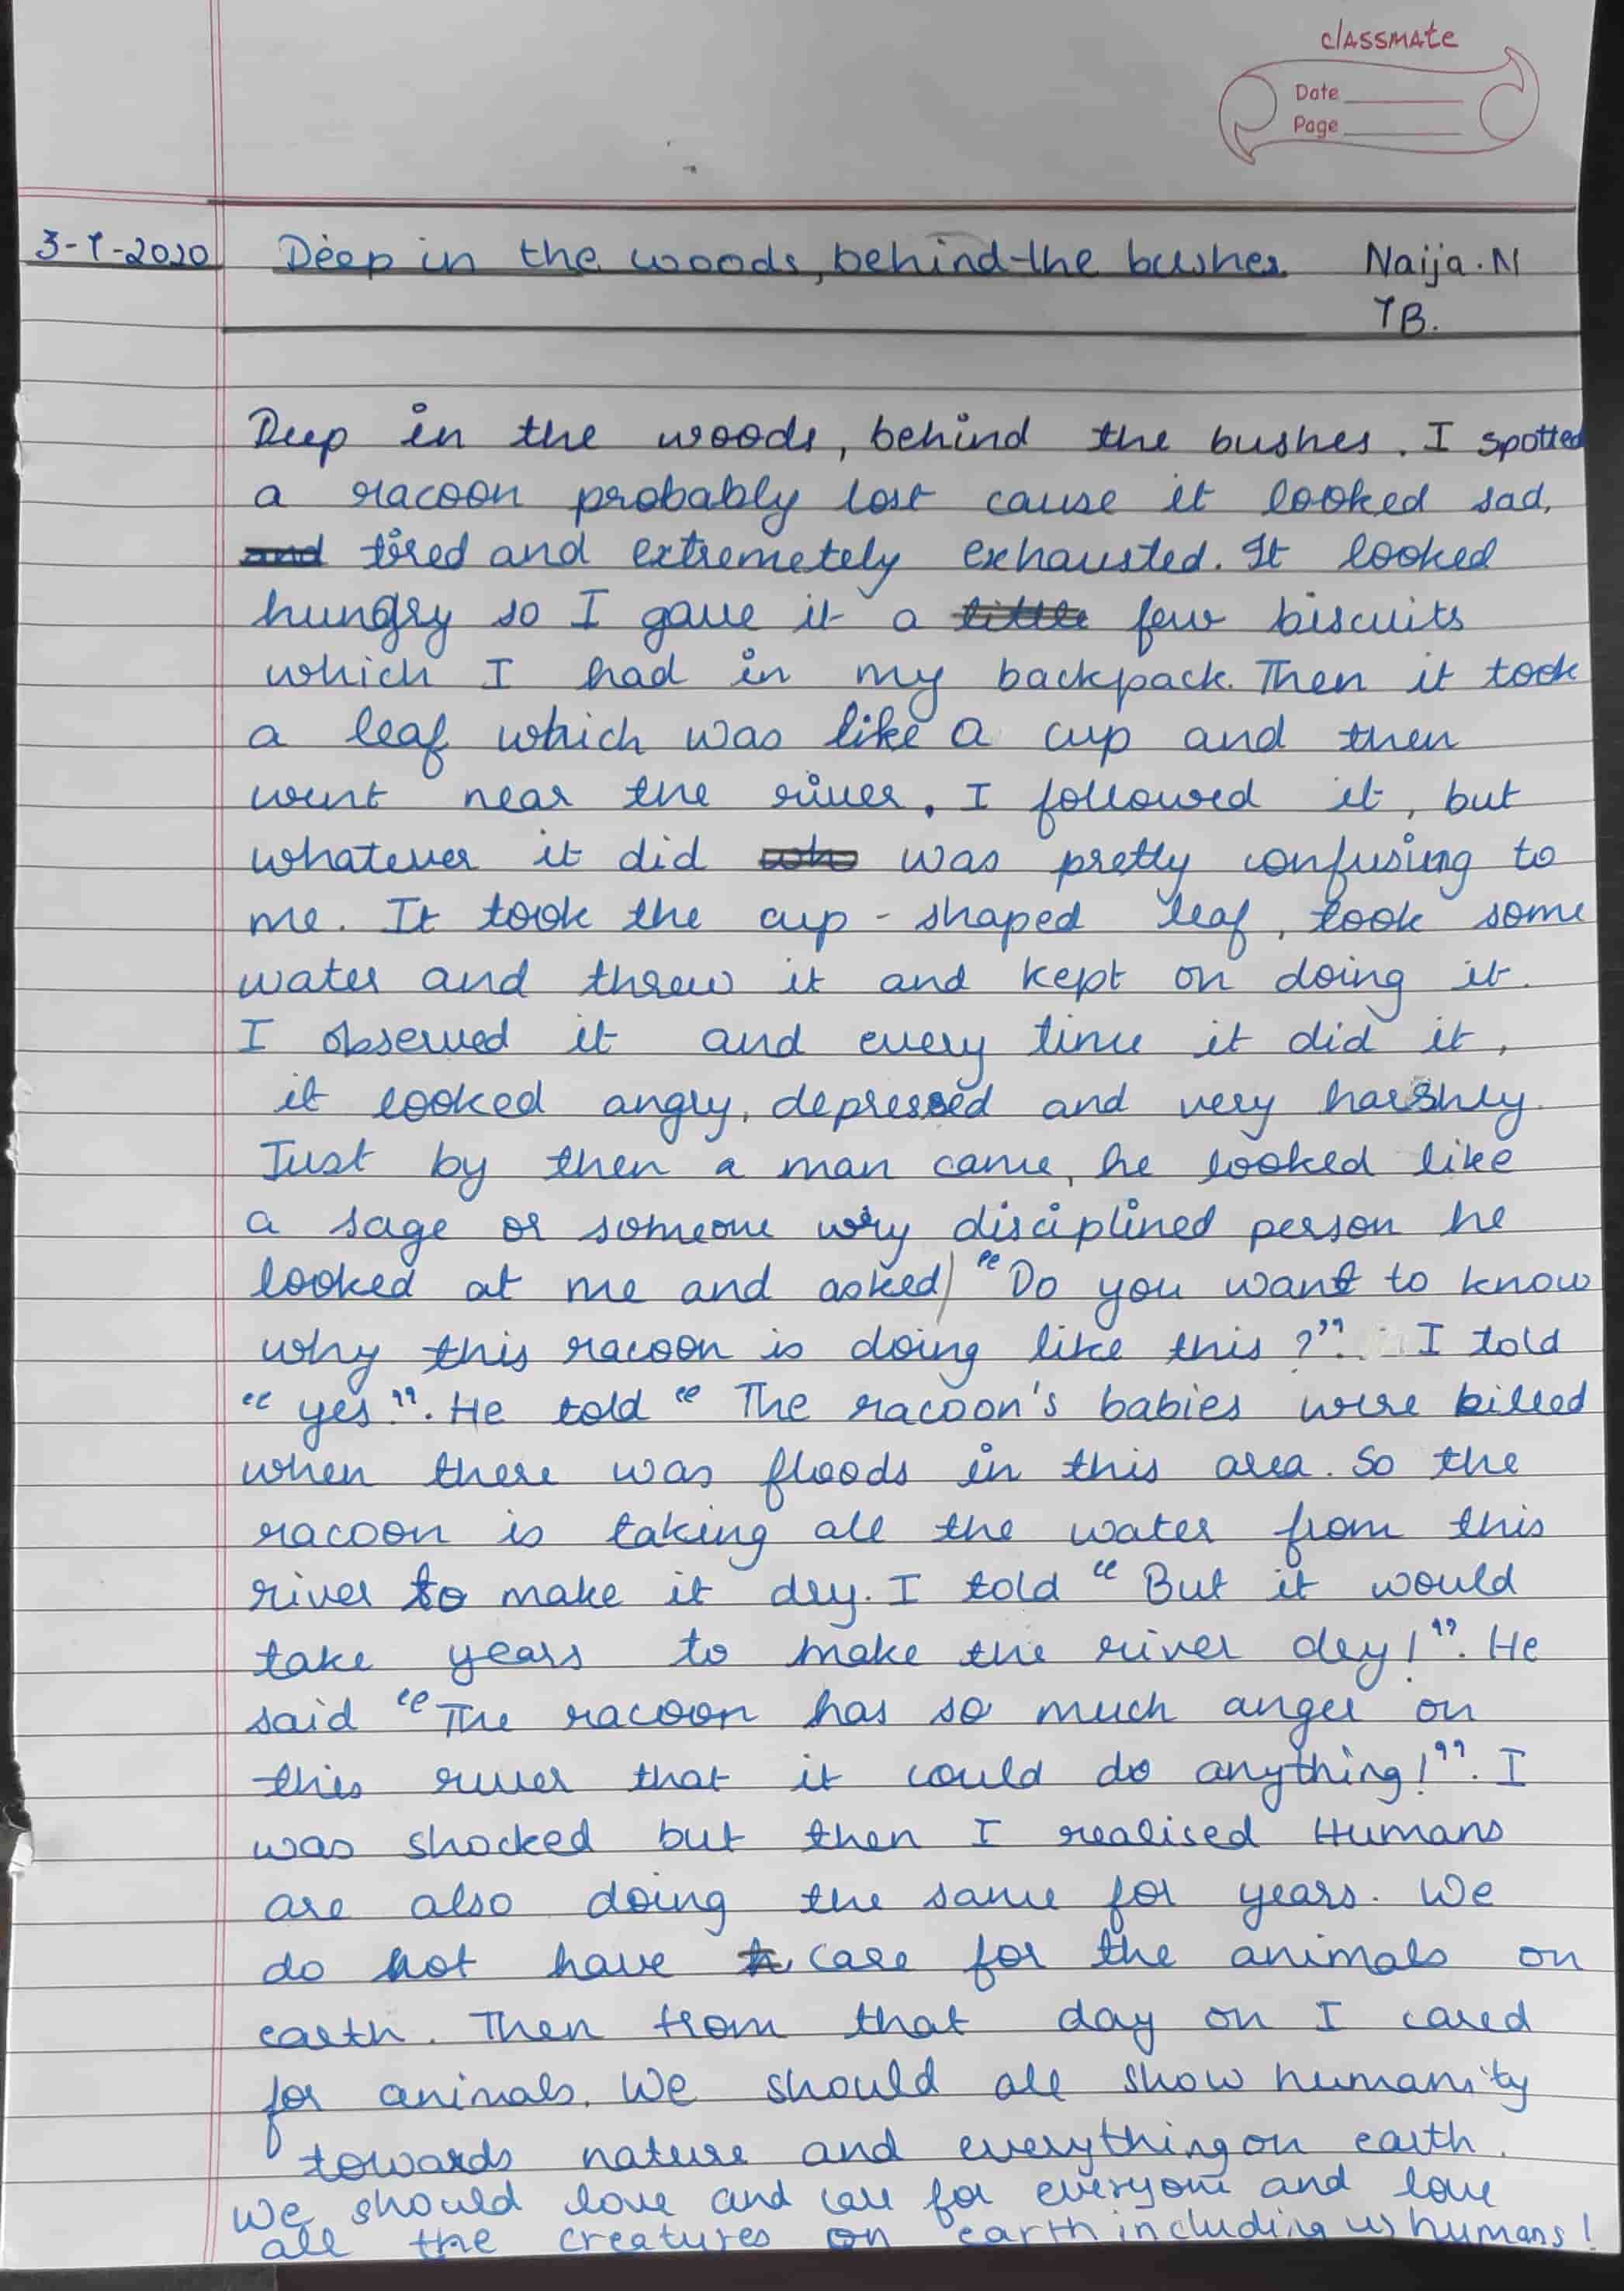 classmate
Date
Page
3-7-2020 Deep in the woods, behind the bushes Naija.N
7B.
Deep in the woods, behind the bushes. I spotted
a racoon probably lost cause it looked sad,
and tired and extremetely exhausted. It looked
hungry so I gave it a little few biscuits
which I had in my backpack. Then it took
a leaf which was like a cup and then
went near the river. I followed it, but
whatever it did was pretty confusing to
me. It took the cup - shaped leaf, took some
water and threw it and kept on doing it.
I observed it and every time it did it,
it looked angry, depressed and very harshly.
Just by then a man came, he looked like
a sage or someone very disciplined person he
looked at me and asked, "Do you want to know
why this racoon is doing like this ?". I told
"yes". He told "The racoon's babies were killed
when there was floods in this area. So the
racoon is taking all the water from this
river to make it dry. I told "But it would
take years to make the river dry!". He
said "The racoon has so much anger on
this river that it could do anything!". I
was shocked but then I realised Humans
are also doing the same for years. We
do not have care for the animals on
earth. Then from that day on I cared
for animals. We should all show humanity
towards nature and everything on earth.
We should love and care for everyone and love
all the creatures on earth including us humans!